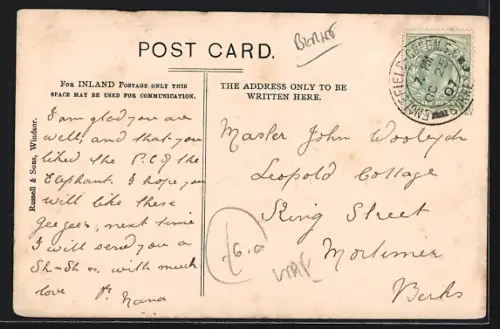 BERKS
POST CARD.
FOR INLAND POSTAGE ONLY THIS
SPACE MAY BE USED FOR COMMUNICATION.
THE ADDRESS ONLY TO BE
WRITTEN HERE.
Russell & Sons, Windsor.
I am glad you are
well, and that you
liked the P.C. of the
Elephant. I hope you
will like these
geegees, next time
I will send you a
Sh-Sh-n. with much
love
Nana
Master John
Leopold Cottage
King Street
Mortimer
Berks
ENGLEFIELD GREEN
OC 25
07
6.0